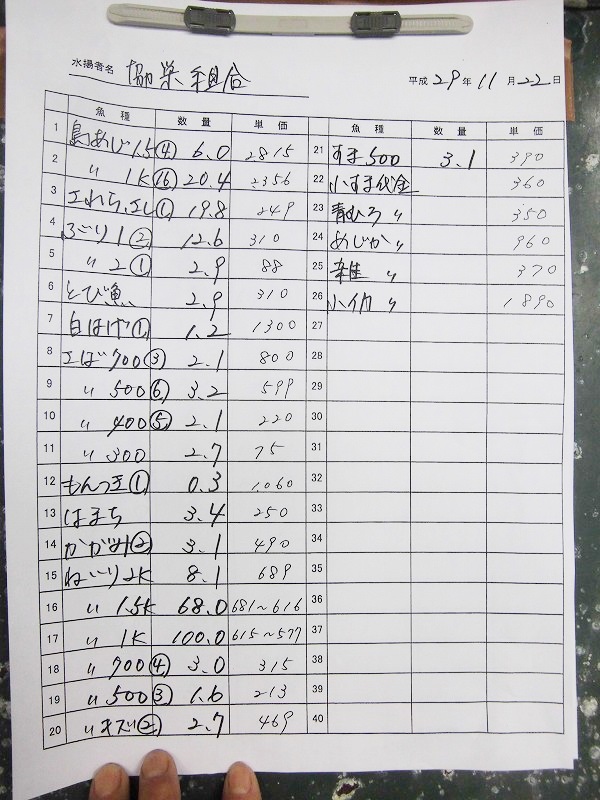 水揚者名 協栄組合 平成29年11月22日
魚種 数量 単価 魚種 数量 単価
1 島あじ1.5④ 6.0 2815
2 〃 1K⑯ 20.4 2356
3 ① 19.8 249
4 ② 12.6 310
5 〃 2① 2.9 88
6 とび魚 2.9 310
7 白はげ① 1.2 1300
8 えば700③ 2.1 800
9 〃 500⑥ 3.2 599
10 〃 400⑤ 2.1 220
11 〃 300 2.7 75
12 もんつき① 0.3 1,060
13 はまち 3.4 250
14 かがみ② 3.1 490
15 ねいり2K 8.1 689
16 〃 1.5K 68.0 681~616
17 〃 1K 100.0 615~577
18 〃 700④ 3.0 315
19 〃 500③ 1.6 213
20 〃 キズ② 2.7 469
21 すま500 3.1 390
22 小すま代金 360
23 青ひろ〃 350
24 めじか〃 960
25 雑〃 370
26 小イカ〃 1890
27
28
29
30
31
32
33
34
35
36
37
38
39
40